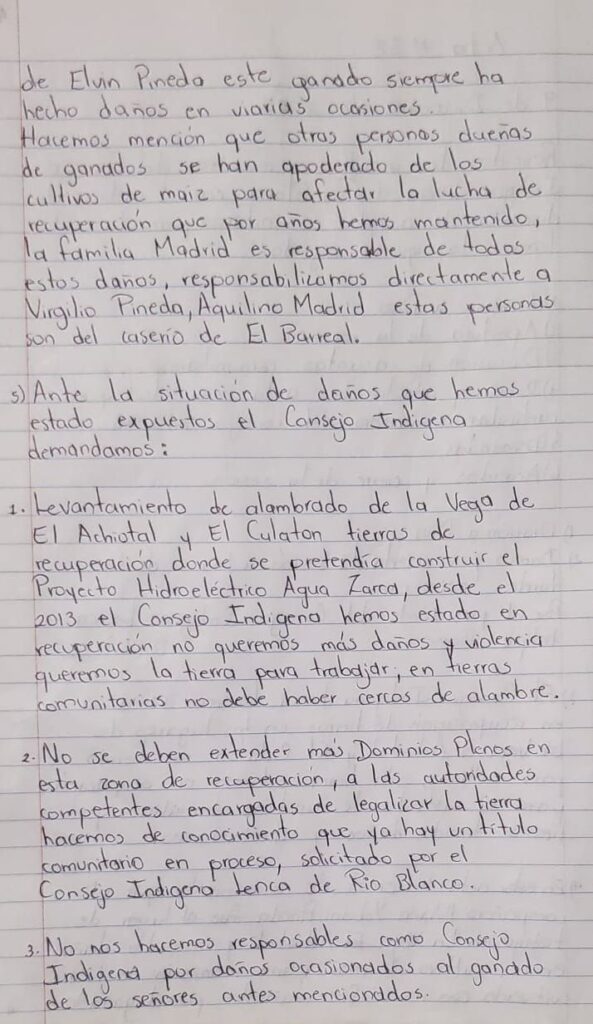 de Elvin Pineda este ganado siempre ha
hecho daños en viarias ocasiones.
Hacemos mención que otras personas dueñas
de ganados se han apoderado de los
cultivos de maiz para afectar la lucha de
recuperación que por años hemos mantenido,
la familia Madrid es responsable de todos
estos daños, responsabilizamos directamente a
Virgilio Pineda, Aquilino Madrid estas personas
son del caserio de El Barreal.
5) Ante la situación de daños que hemos
estado expuestos el Consejo Indigena
demandamos:
1. Levantamiento de alambrado de la Vega de
El Achiotal y El Culaton tierras de
recuperación donde se pretendía construir el
Proyecto Hidroeléctrico Agua Zarca, desde el
2013 el Consejo Indigena hemos estado en
recuperación no queremos más daños y violencia
queremos la tierra para trabajar, en tierras
comunitarias no debe haber cercos de alambre.
2. No se deben extender más Dominios Plenos en
esta zona de recuperación, a las autoridades
competentes encargadas de legalizar la tierra
hacemos de conocimiento que ya hay un titulo
comunitario en proceso, solicitado por el
Consejo Indigena Lenca de Rio Blanco.
3. No nos hacemos responsables como Consejo
Indigena por daños ocasionados al ganado
de los señores antes mencionddos.